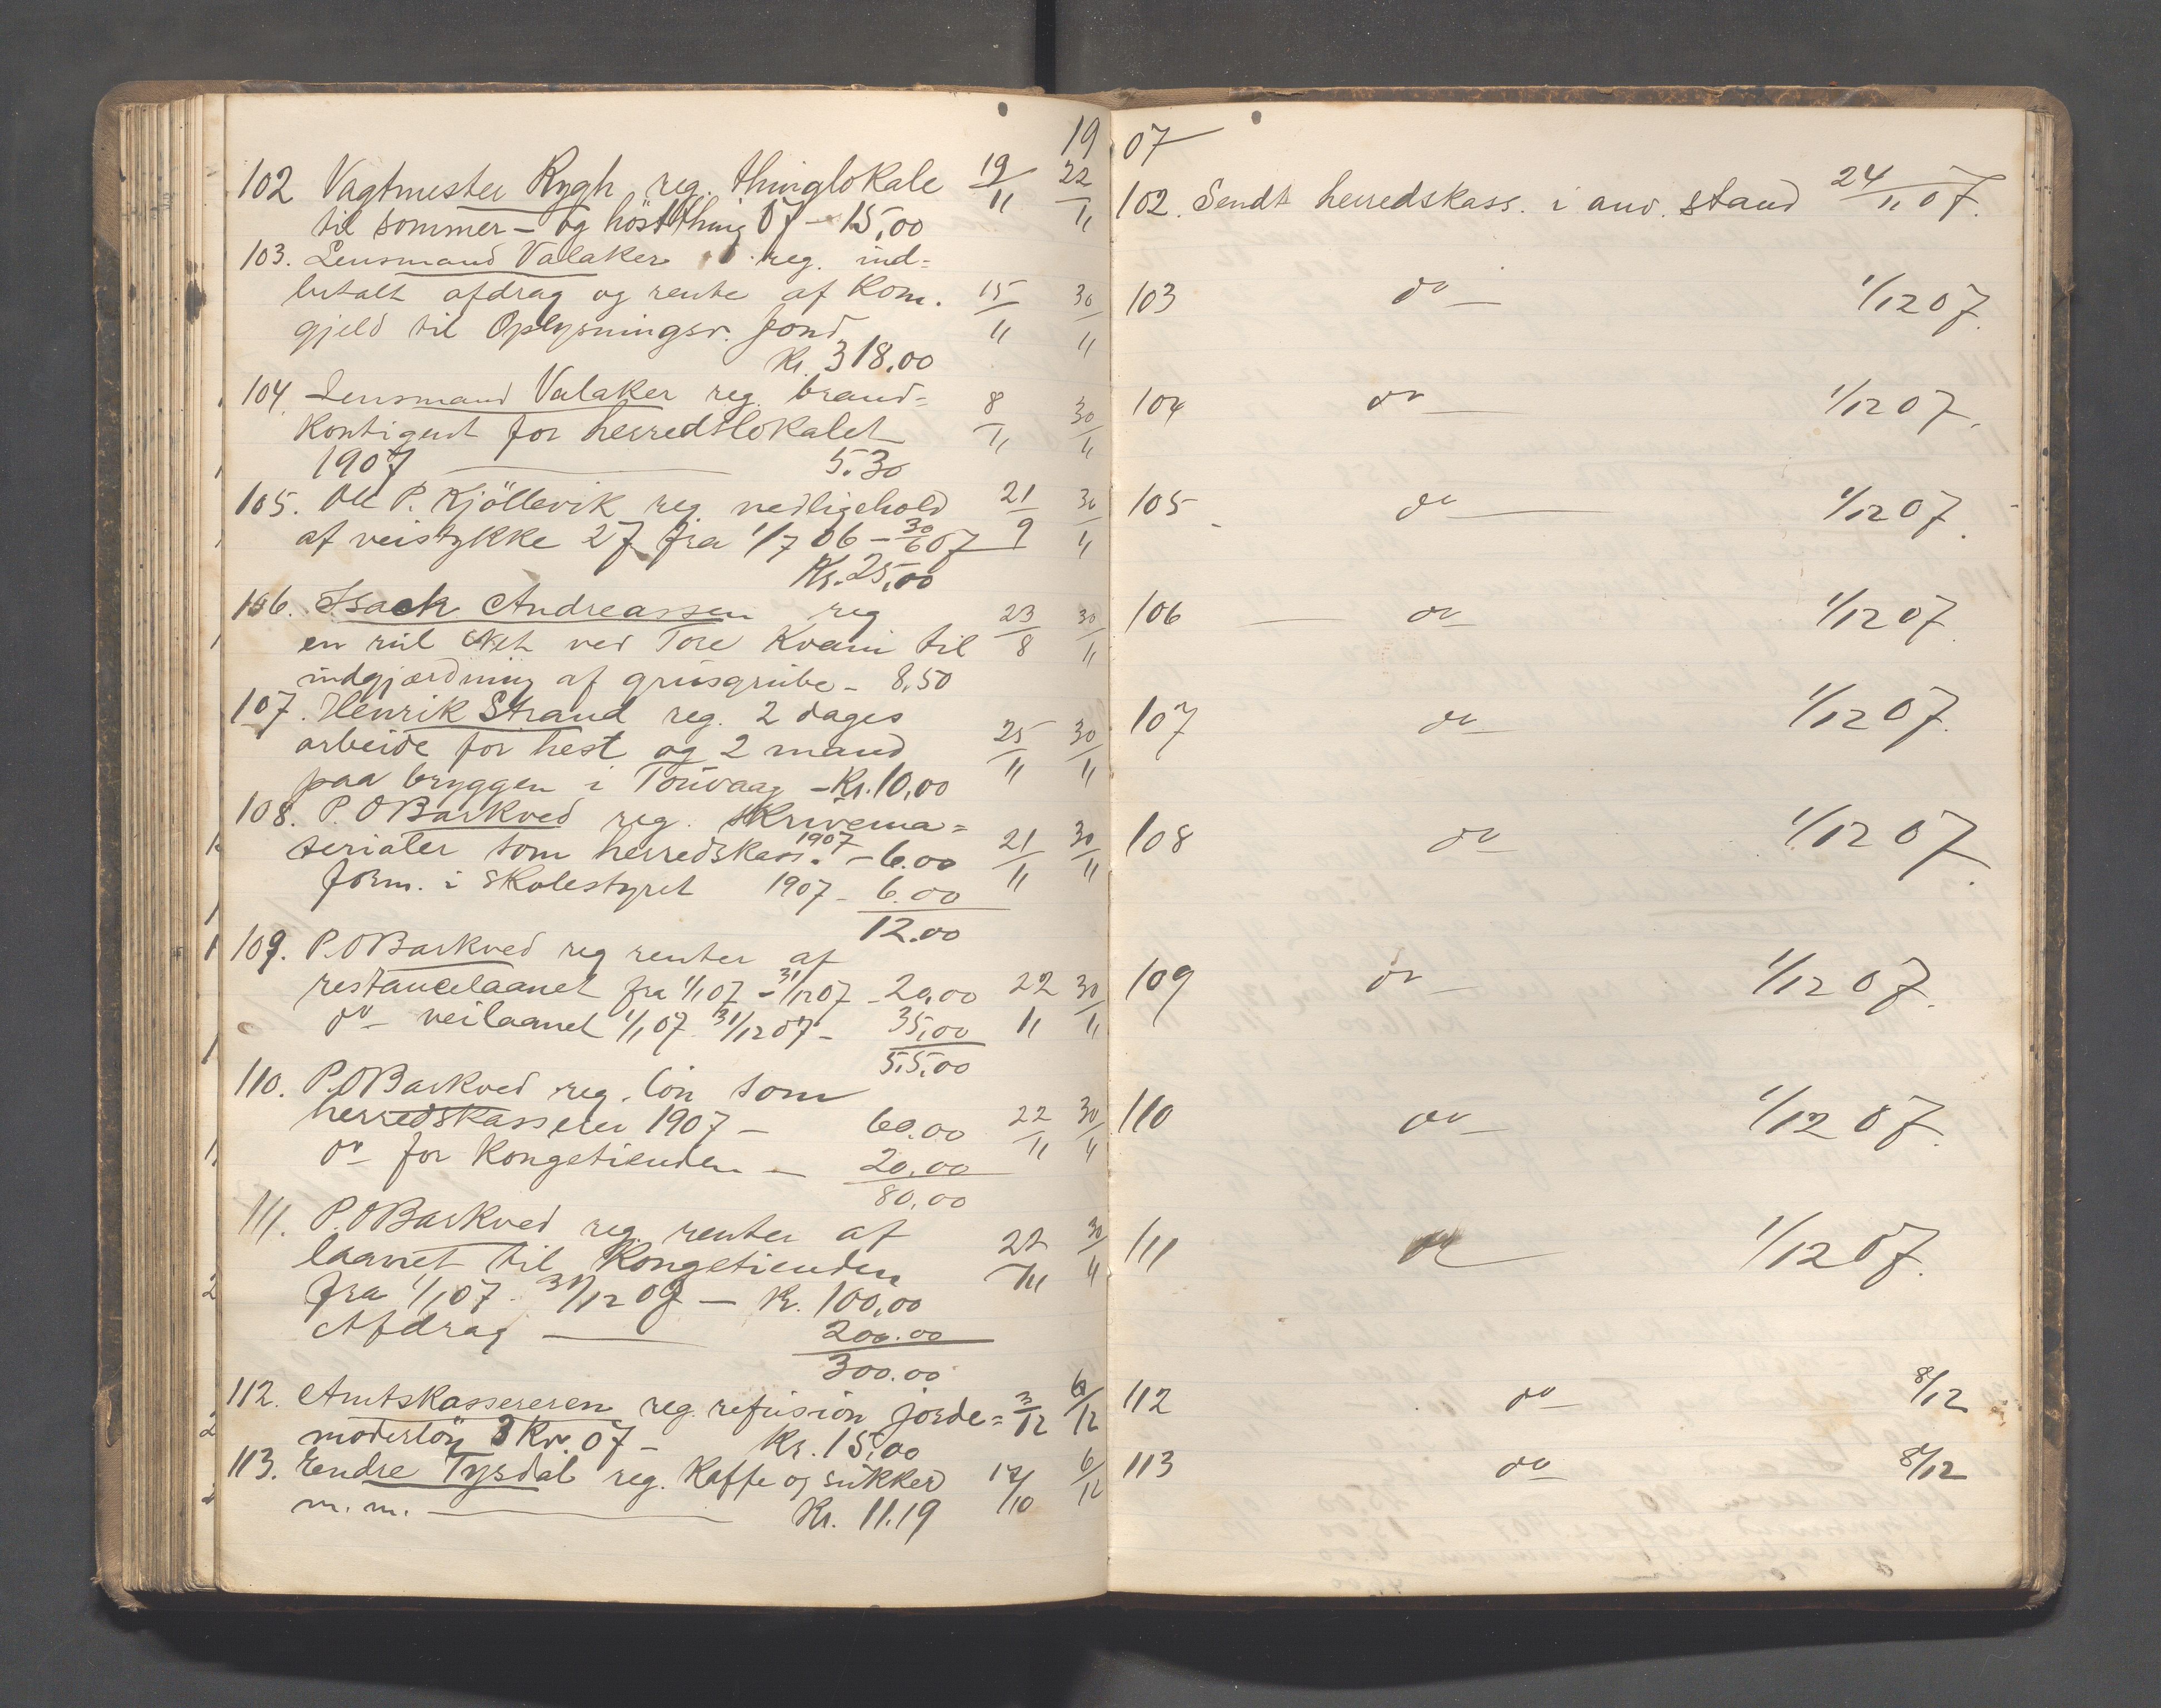 19
102 Vagtmester Rygh reg. thinglokale 19/11 22/11
til sommer - og høstthing 07 - 15,00
103. Lensmand Valaker reg. ind=
betalt afdrag og rente af kom. 15/11 30/11
gjeld til Oplysningsv. fond
Kr. 318.00
104. Lensmand Valaker reg. brand= 8/11 30/11
kontigent for herredslokalet
1907 — 5.30
105. Ole P. Kjöllevik reg vedligehold 21/9 30/11
af veistykke 27 fra 1/7 06 - 30/6 07
Kr. 25,00
106. Isack Andreassen reg 23/8 30/11
en ved Tore Kvam til
indgjærdning af grusgrube - 8.50
107. Henrik Strand reg. 2 dages
arbeide for hest og 2 mand 25/11 30/11
paa bryggen i Torvaag - Kr. 10,00
108. P. O Barkved reg. skrivema=
terialer som herredskass. 1907 - 6.00 21/11 30/11
form. i skolestyret 1907 - 6.00
12.00
109. P. O Barkved reg renter af
restancelaanet fra 1/1 07 - 31/12 07 - 20,00 22/11 30/11
do - veilaanet 1/1 07 - 31/12 07 - 35,00
55,00
110. P. O Barkved reg. lön som
herredskasserer 1907 - 60.00 22/11 30/11
do - for Kongetienden - 20,00
80,00
111. P. O Barkved reg. renter af
laanet til Kongetienden 22/11 30/11
fra 1/1 07 - 31/12 07 - Kr. 100,00
Afdrag — 200.00
300.00
112. Amtskassereren reg. refusion jorde= 3/12 6/12
moderlön 3 Kv. 07 - Kr. 15,00
113. Endre Tysdal reg. kaffe og sukker 17/10 6/12
m. m. — Kr. 11.19
07
102. Sendt herredskass. i anv. stand 24/11 07.
103 do — 1/12 07.
104 do — 1/12 07.
105 do — 1/12 07.
106 — do — 1/12 07.
107 do — 1/12 07.
108 do — 1/12 07.
109 do — 1/12 07.
110 do — 1/12 07.
111 do — 1/12 07.
112 do — 8/12
113 do — 8/12